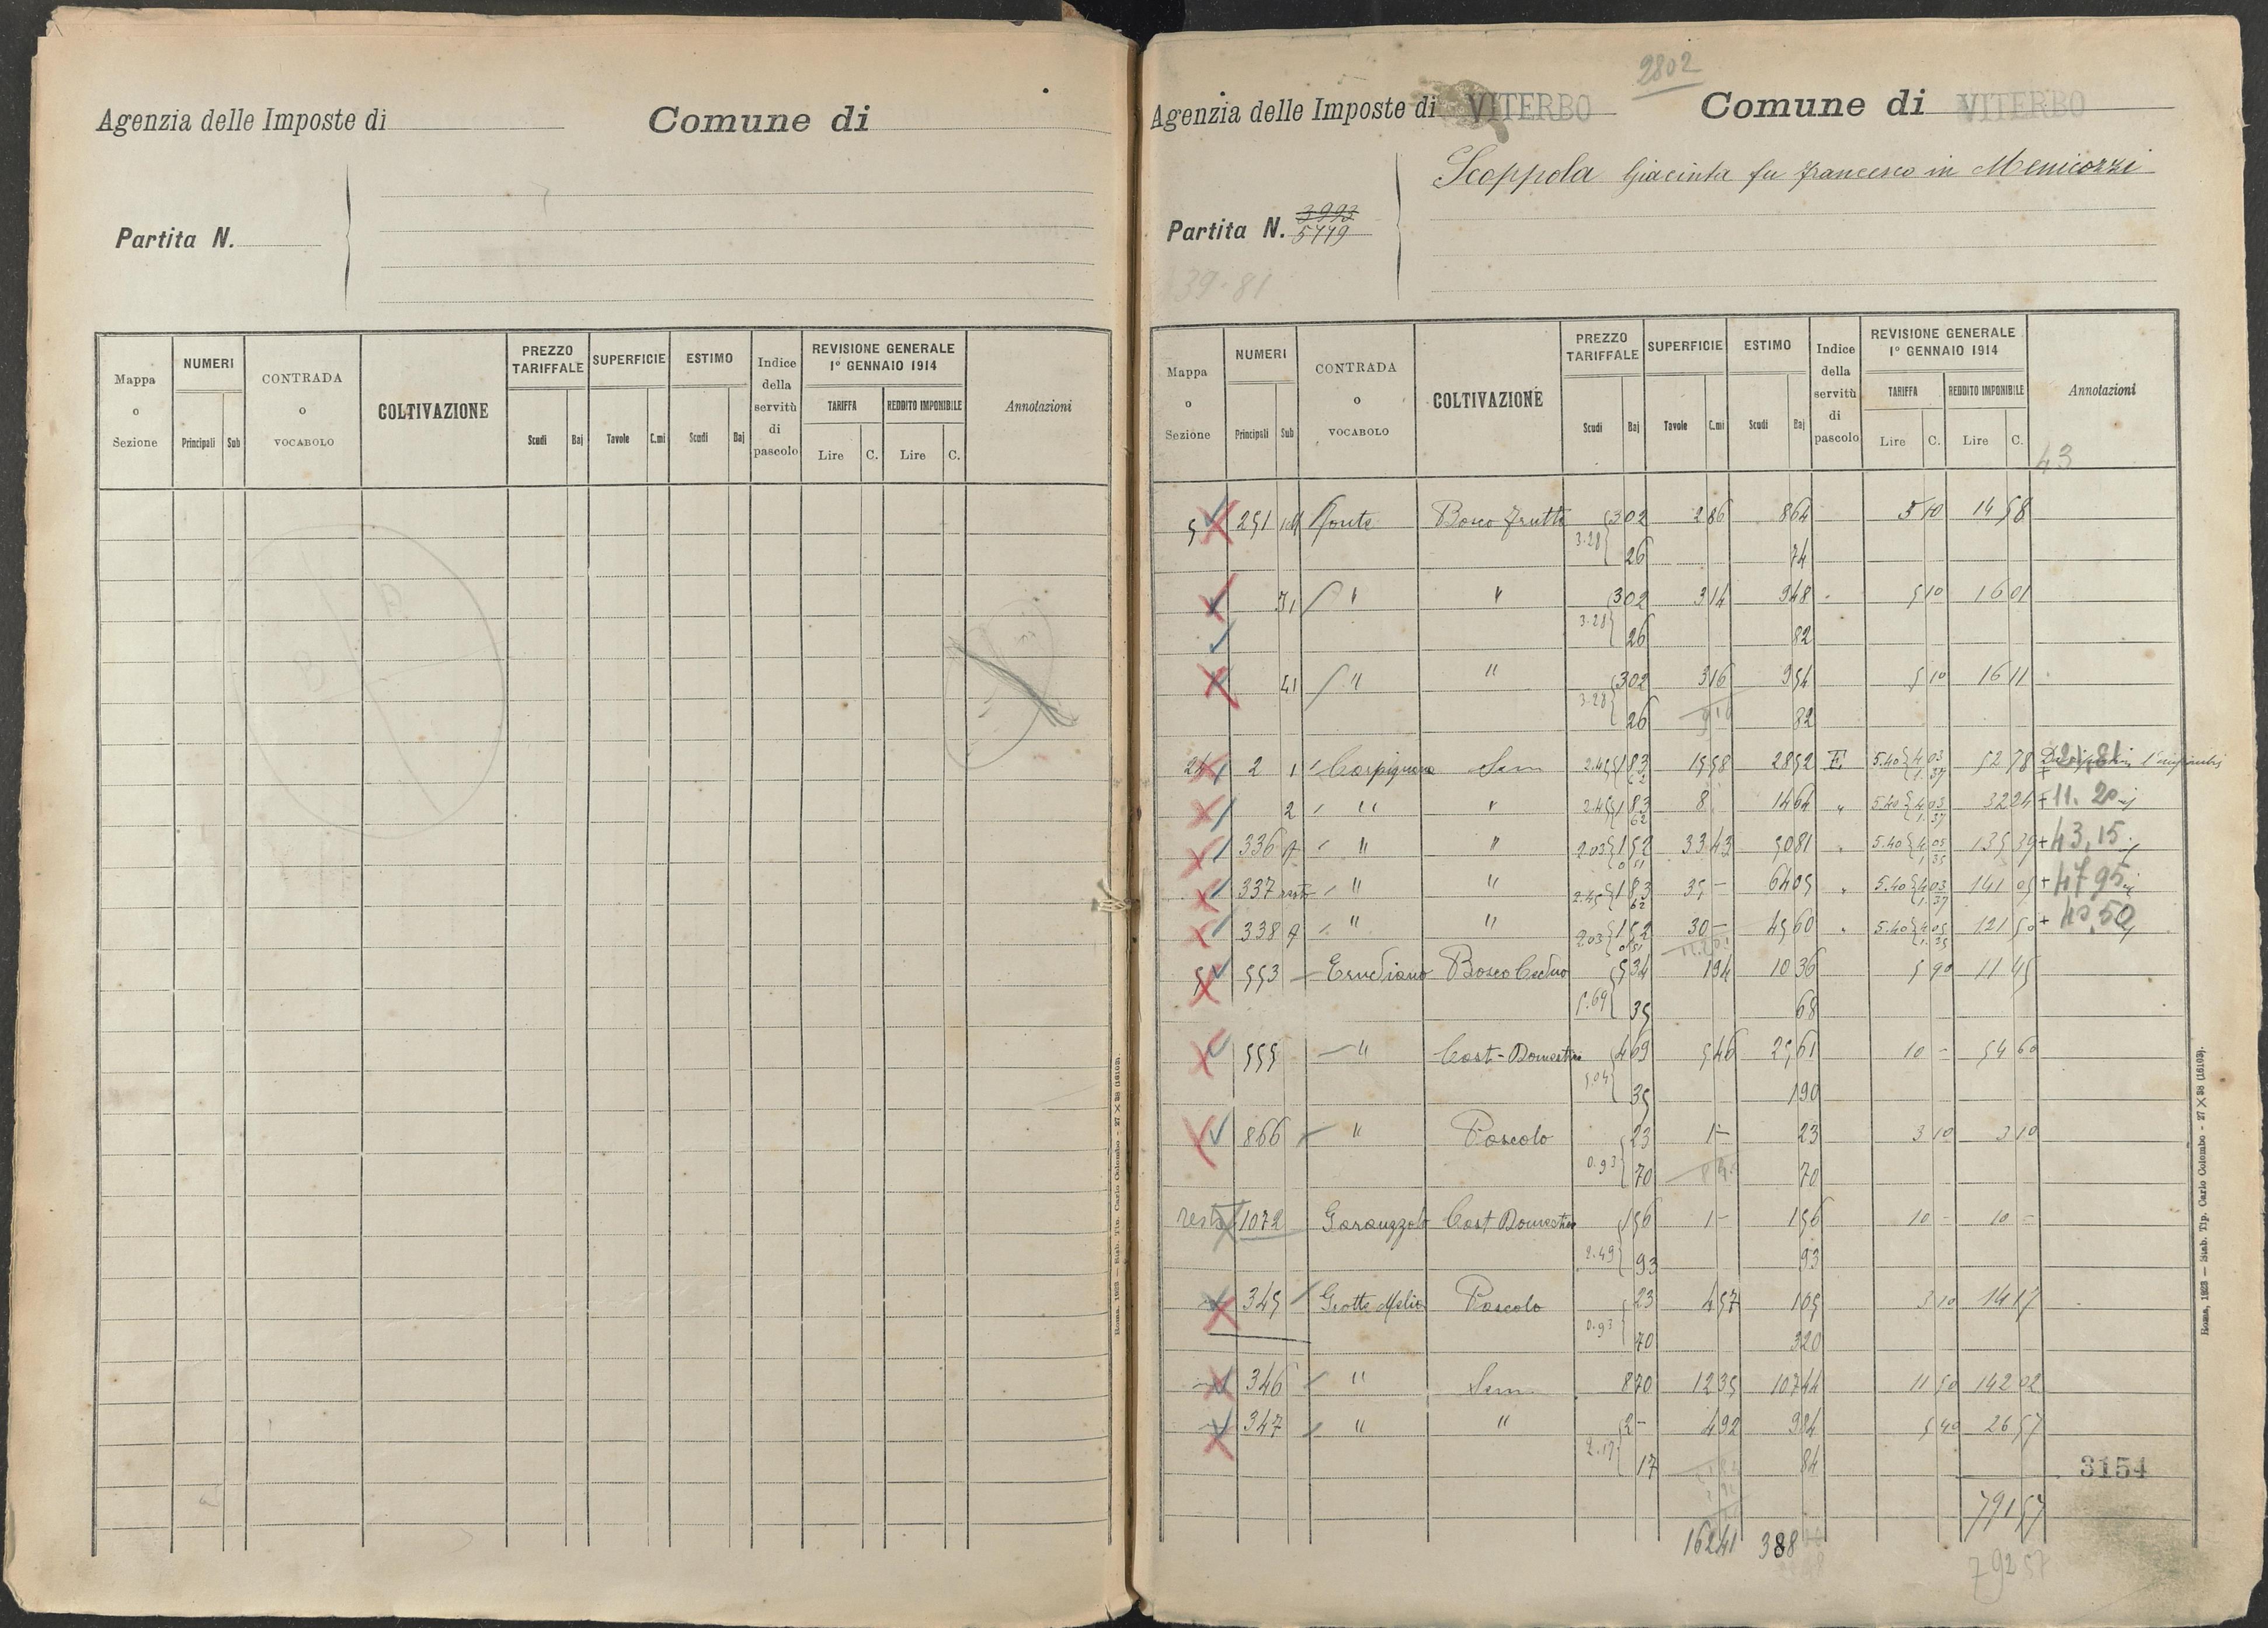 Agenzia delle Imposte di
Comune di
Partita N.
Mappa o Sezione
NUMERI
Principali Sub
CONTRADA o VOCABOLO
COLTIVAZIONE
PREZZO TARIFFALE
Scudi Baj
SUPERFICIE
Tavole C.mi
ESTIMO
Scudi Baj
Indice della servitù di pascolo
REVISIONE GENERALE 1° GENNAIO 1914
TARIFFA
Lire C.
REDDITO IMPONIBILE
Lire C.
Annotazioni
Roma, 1923 — Stab. Tip. Carlo Colombo - 27 × 38 (16103).
2802
Agenzia delle Imposte di VITERBO
Comune di VITERBO
Scoppola Giacinta fu Francesco in Menicozzi
Partita N. 3993
5779
39-81
Mappa o Sezione
NUMERI
Principali Sub
CONTRADA o VOCABOLO
COLTIVAZIONE
PREZZO TARIFFALE
Scudi Baj
SUPERFICIE
Tavole C.mi
ESTIMO
Scudi Baj
Indice della servitù di pascolo
REVISIONE GENERALE 1° GENNAIO 1914
TARIFFA
Lire C.
REDDITO IMPONIBILE
Lire C.
Annotazioni
43
5 251 Bosco frutto 302 286 864 5 10 14 58
3.28 26 74
" " 302 314 948 5 10 16 01
3.28 26 82
" " 302 316 954 5 10 16 11
3.28 26 82
24 2 1 Carpignana Sem 2.45 183 1558 2852 E 5.40 4 03 52 78
62 1.37
2 " " 2.45 183 8 1464 " 5.40 4 03 32 24 + 11. 20
62 1.37
336 " " 2.03 152 3343 5081 " 5.40 4 05 135 39 + 43,15
0 51 1 35
337 resto " " 2.45 183 35 - 6405 " 5.40 4 03 141 05 + 47,95
62 1.37
338 " " 2.03 152 30 - 4560 " 5.40 4 05 121 50 + 40,50
0 51 1.35
5 553 Bosco Ceduo 534 194 10 36 5 90 11 45
5.69 35 68
555 " Cast-Domestico 469 546 25 61 10 - 54 60
5.04 35 190
866 " Pascolo 23 1 - 23 3 10 3 10
0.93 70 70
resto 1072 Cast Domestico 156 1 - 156 10 - 10 -
2.49 93 93
345 Grotte Pascolo 23 457 105 3 10 14 17
0.93 70 320
346 " Sem 870 1235 10744 11 50 142 02
347 " " 2 - 492 984 5 40 26 57
2.17 17 84
3154
791 57
16241 388
792 57
Roma, 1923 — Stab. Tip. Carlo Colombo - 27 × 38 (16103).